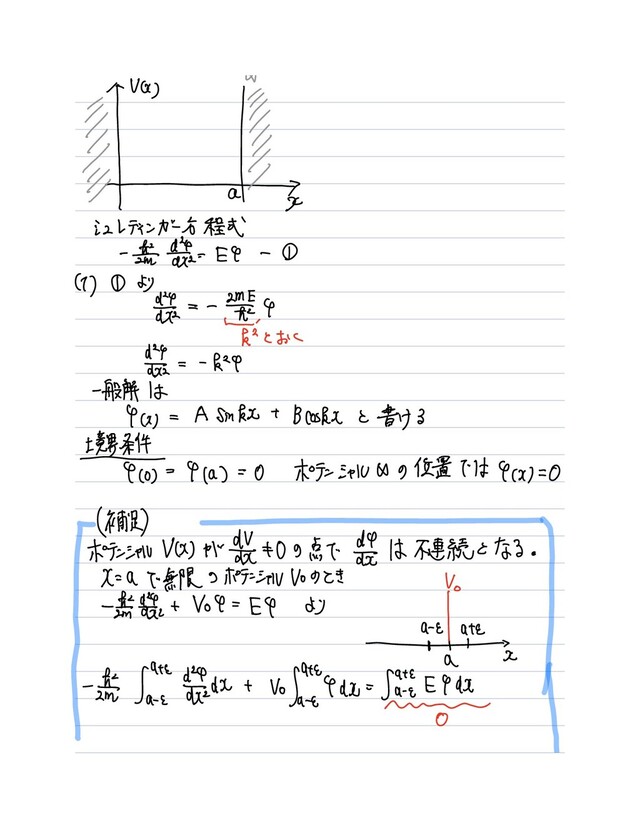 V(x)
∞
a
x
シュレディンガー方程式
-ħ²/2m d²φ/dx² = Eφ - ①
(ア) ①より
d²φ/dx² = - 2mE/ħ² φ
k²とおく
d²φ/dx² = -k²φ
一般解は
φ(x) = A sinkx + B coskx と書ける
境界条件
φ(0) = φ(a) = 0 ポテンシャル∞の位置ではφ(x)=0
(補足)
ポテンシャルV(x)がdV/dx ≠0の点でdφ/dxは不連続となる。
x=aで無限のポテンシャルV₀のとき
-ħ²/2m d²φ/dx² + V₀φ = Eφ より
V₀
a-ε a+ε
a x
-ħ²/2m ∫_{a-ε}^{a+ε} d²φ/dx² dx + V₀∫_{a-ε}^{a+ε} φdx = ∫_{a-ε}^{a+ε} Eφdx
0